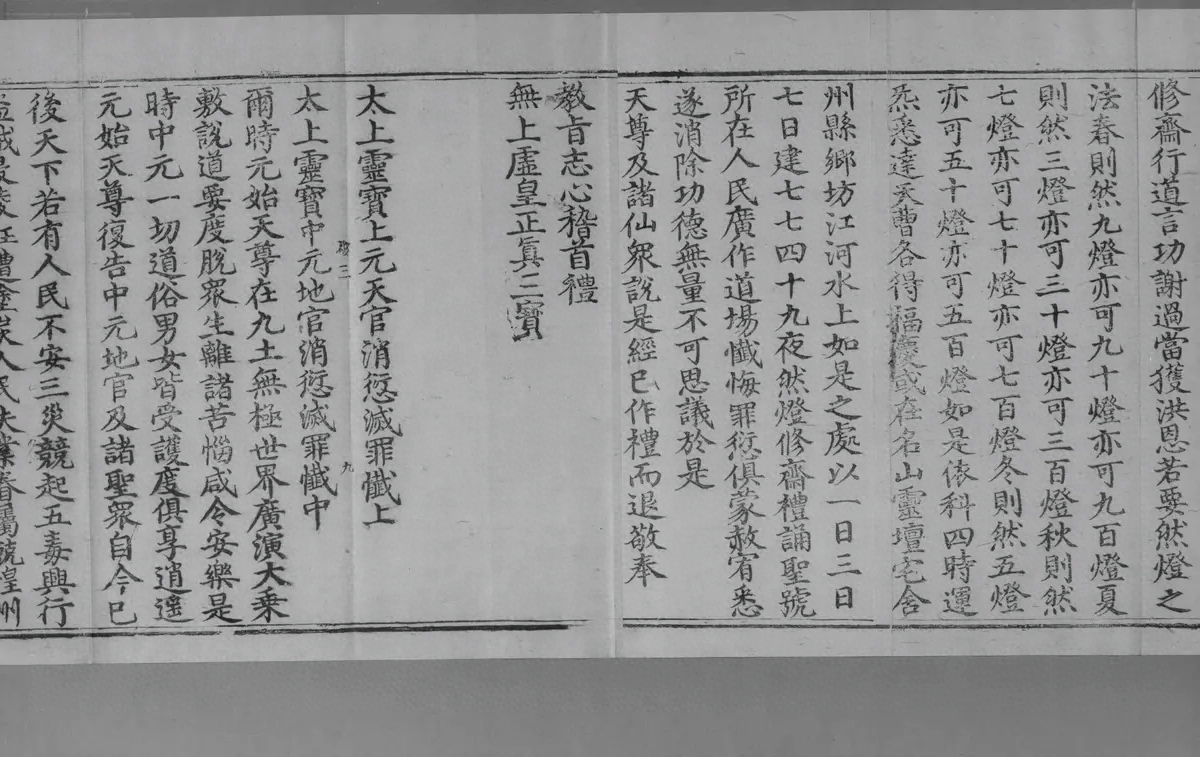 修齋行道言功謝過當獲洪恩若要然燈之
法春則然九燈亦可九十燈亦可九百燈夏
則然三燈亦可三十燈亦可三百燈秋則然
七燈亦可七十燈亦可七百燈冬則然五燈
亦可五十燈亦可五百燈如是依科四時運
炁悉達天曹各得福慶或在名山靈壇宅舍
州縣鄉坊江河水上如是之處以一日三日
七日建七七四十九夜然燈修齋禮誦聖號
所在人民廣作道場懺悔罪愆俱蒙赦宥悉
遂消除功德無量不可思議於是
天尊及諸仙眾說是經已作禮而退敬奉
教旨志心稽首禮
無上虛皇正真三寶
太上靈寶上元天官消愆滅罪懺上
三
九
太上靈寶中元地官消愆滅罪懺中
爾時元始天尊在九土無極世界廣演大乘
敷說道要度脫眾生離諸苦惱咸令安樂是
時中元一切道俗男女皆受護度俱享逍遙
元始天尊復告中元地官及諸聖眾自今已
後天下若有人民不安三災競起五毒興行